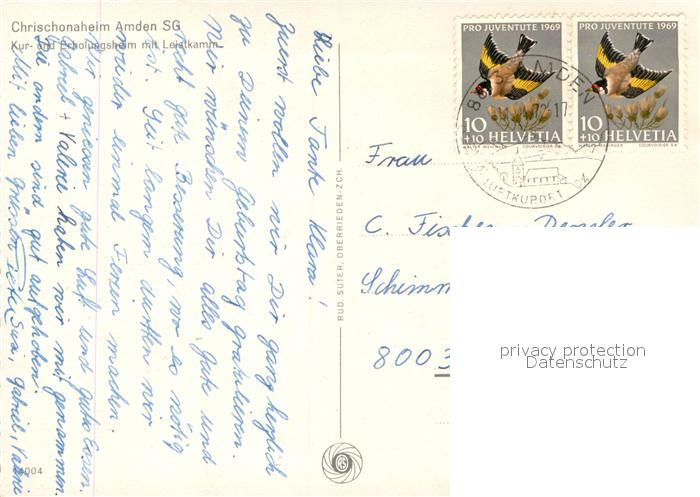 Chrischonaheim Amden SG
Kur- und Erholungsheim mit Leistkamm
Liebe Tante Klara!
Zuerst wollen wir Dir ganz herzlich
zu Deinem Geburtstag gratulieren.
Wir wünschen Dir alles Gute und
recht gute Besserung, wo es nötig
ist. Seit langem durften wir
wieder einmal Ferien machen.
Wir geniessen gute Luft und gutes Essen.
Gabriel + Valerie haben wir mitgenommen.
die andern sind gut aufgehoben.
Mit lieben Grüssen Susi, Gabriel, Valerie
14004
RUD. SUTER, OBERRIEDEN-ZCH.
PRO JUVENTUTE 1969
10
+10 HELVETIA
WALTER WEHINGER COURVOISIER S.A.
PRO JUVENTUTE 1969
10
+10 HELVETIA
WALTER WEHINGER COURVOISIER S.A.
AMDEN
LUFTKURORT
Frau
C. Fischer-
Schimm
8003
privacy protection
Datenschutz